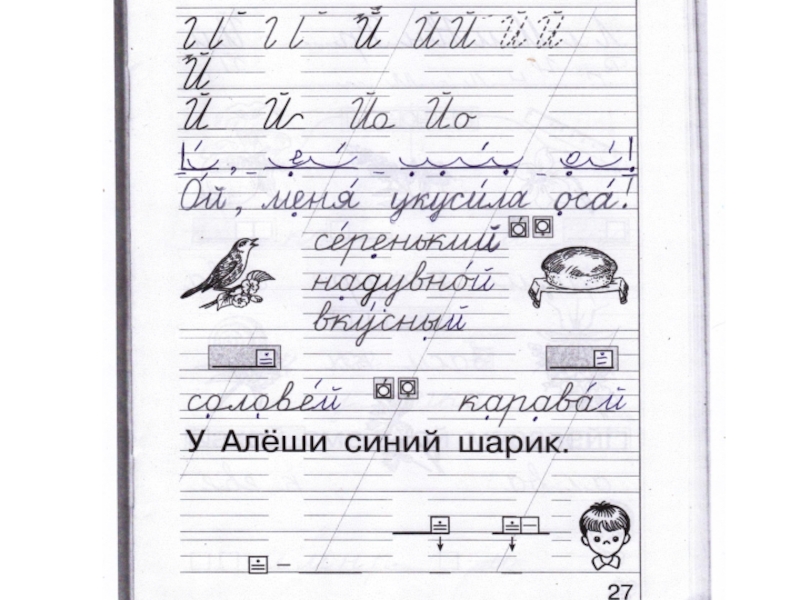 Й Й Й Й Й Й
Й
Й Й Йо Йо
Ой, меня́ укуси́ла оса́!
се́ренький
надувно́й
вку́сный
солове́й карава́й
У Алёши синий шарик.
27